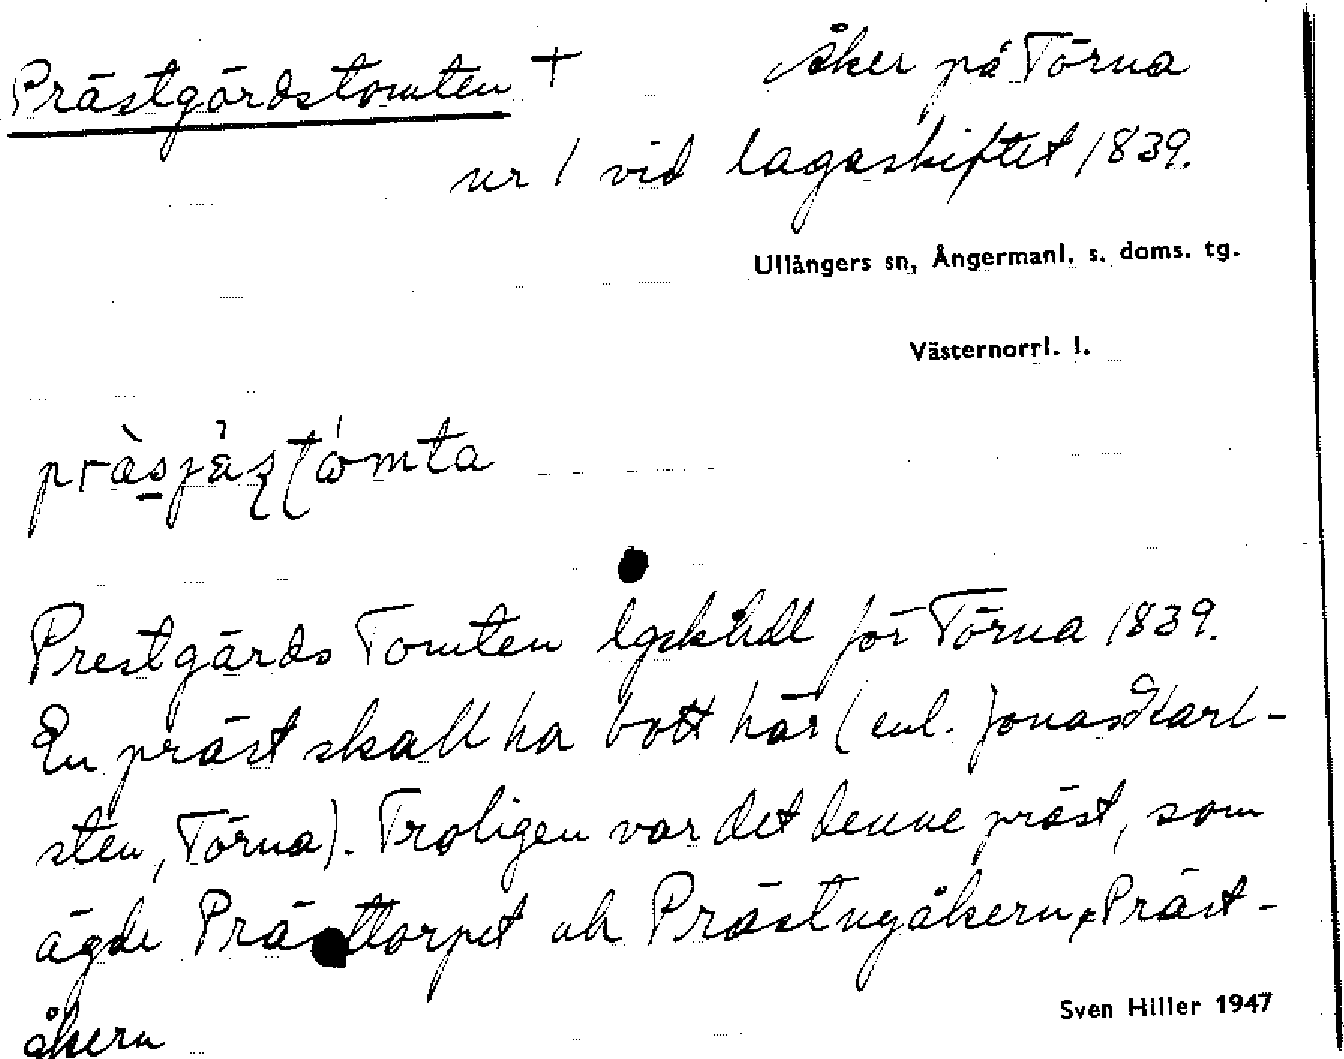 Prästgårdstomten + åker på Törna
nr 1 vid lagaskiftet 1839.
Ullångers sn, Ångermanl. s. doms. tg.
Västernorrl. l.
Prestgårds Tomten lgskhdl för Törna 1839.
En präst skall ha bott här (enl. Jonas Karl-
sten, Törna). Troligen var det denne präst, som
ägde Prästtorpet och Prästnyåkern, Präst-
åkern
Sven Hiller 1947